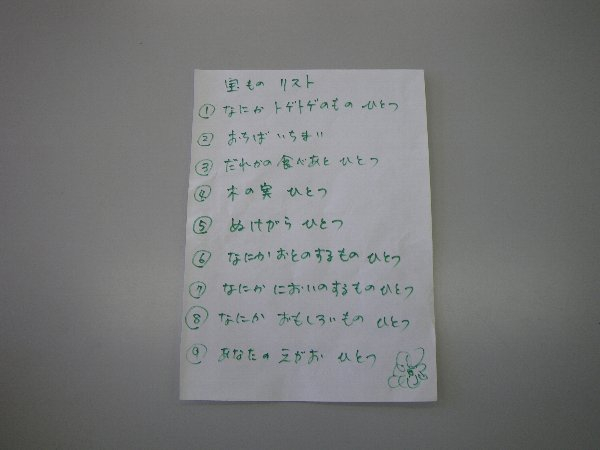 宝もの リスト
① なにか トゲトゲのもの ひとつ
② おちば いちまい
③ だれかの食べあと ひとつ
④ 木の実 ひとつ
⑤ ぬけがら ひとつ
⑥ なにかおとのするもの ひとつ
⑦ なにか においのするもの ひとつ
⑧ なにか おもしろいもの ひとつ
⑨ あなたの えがお ひとつ